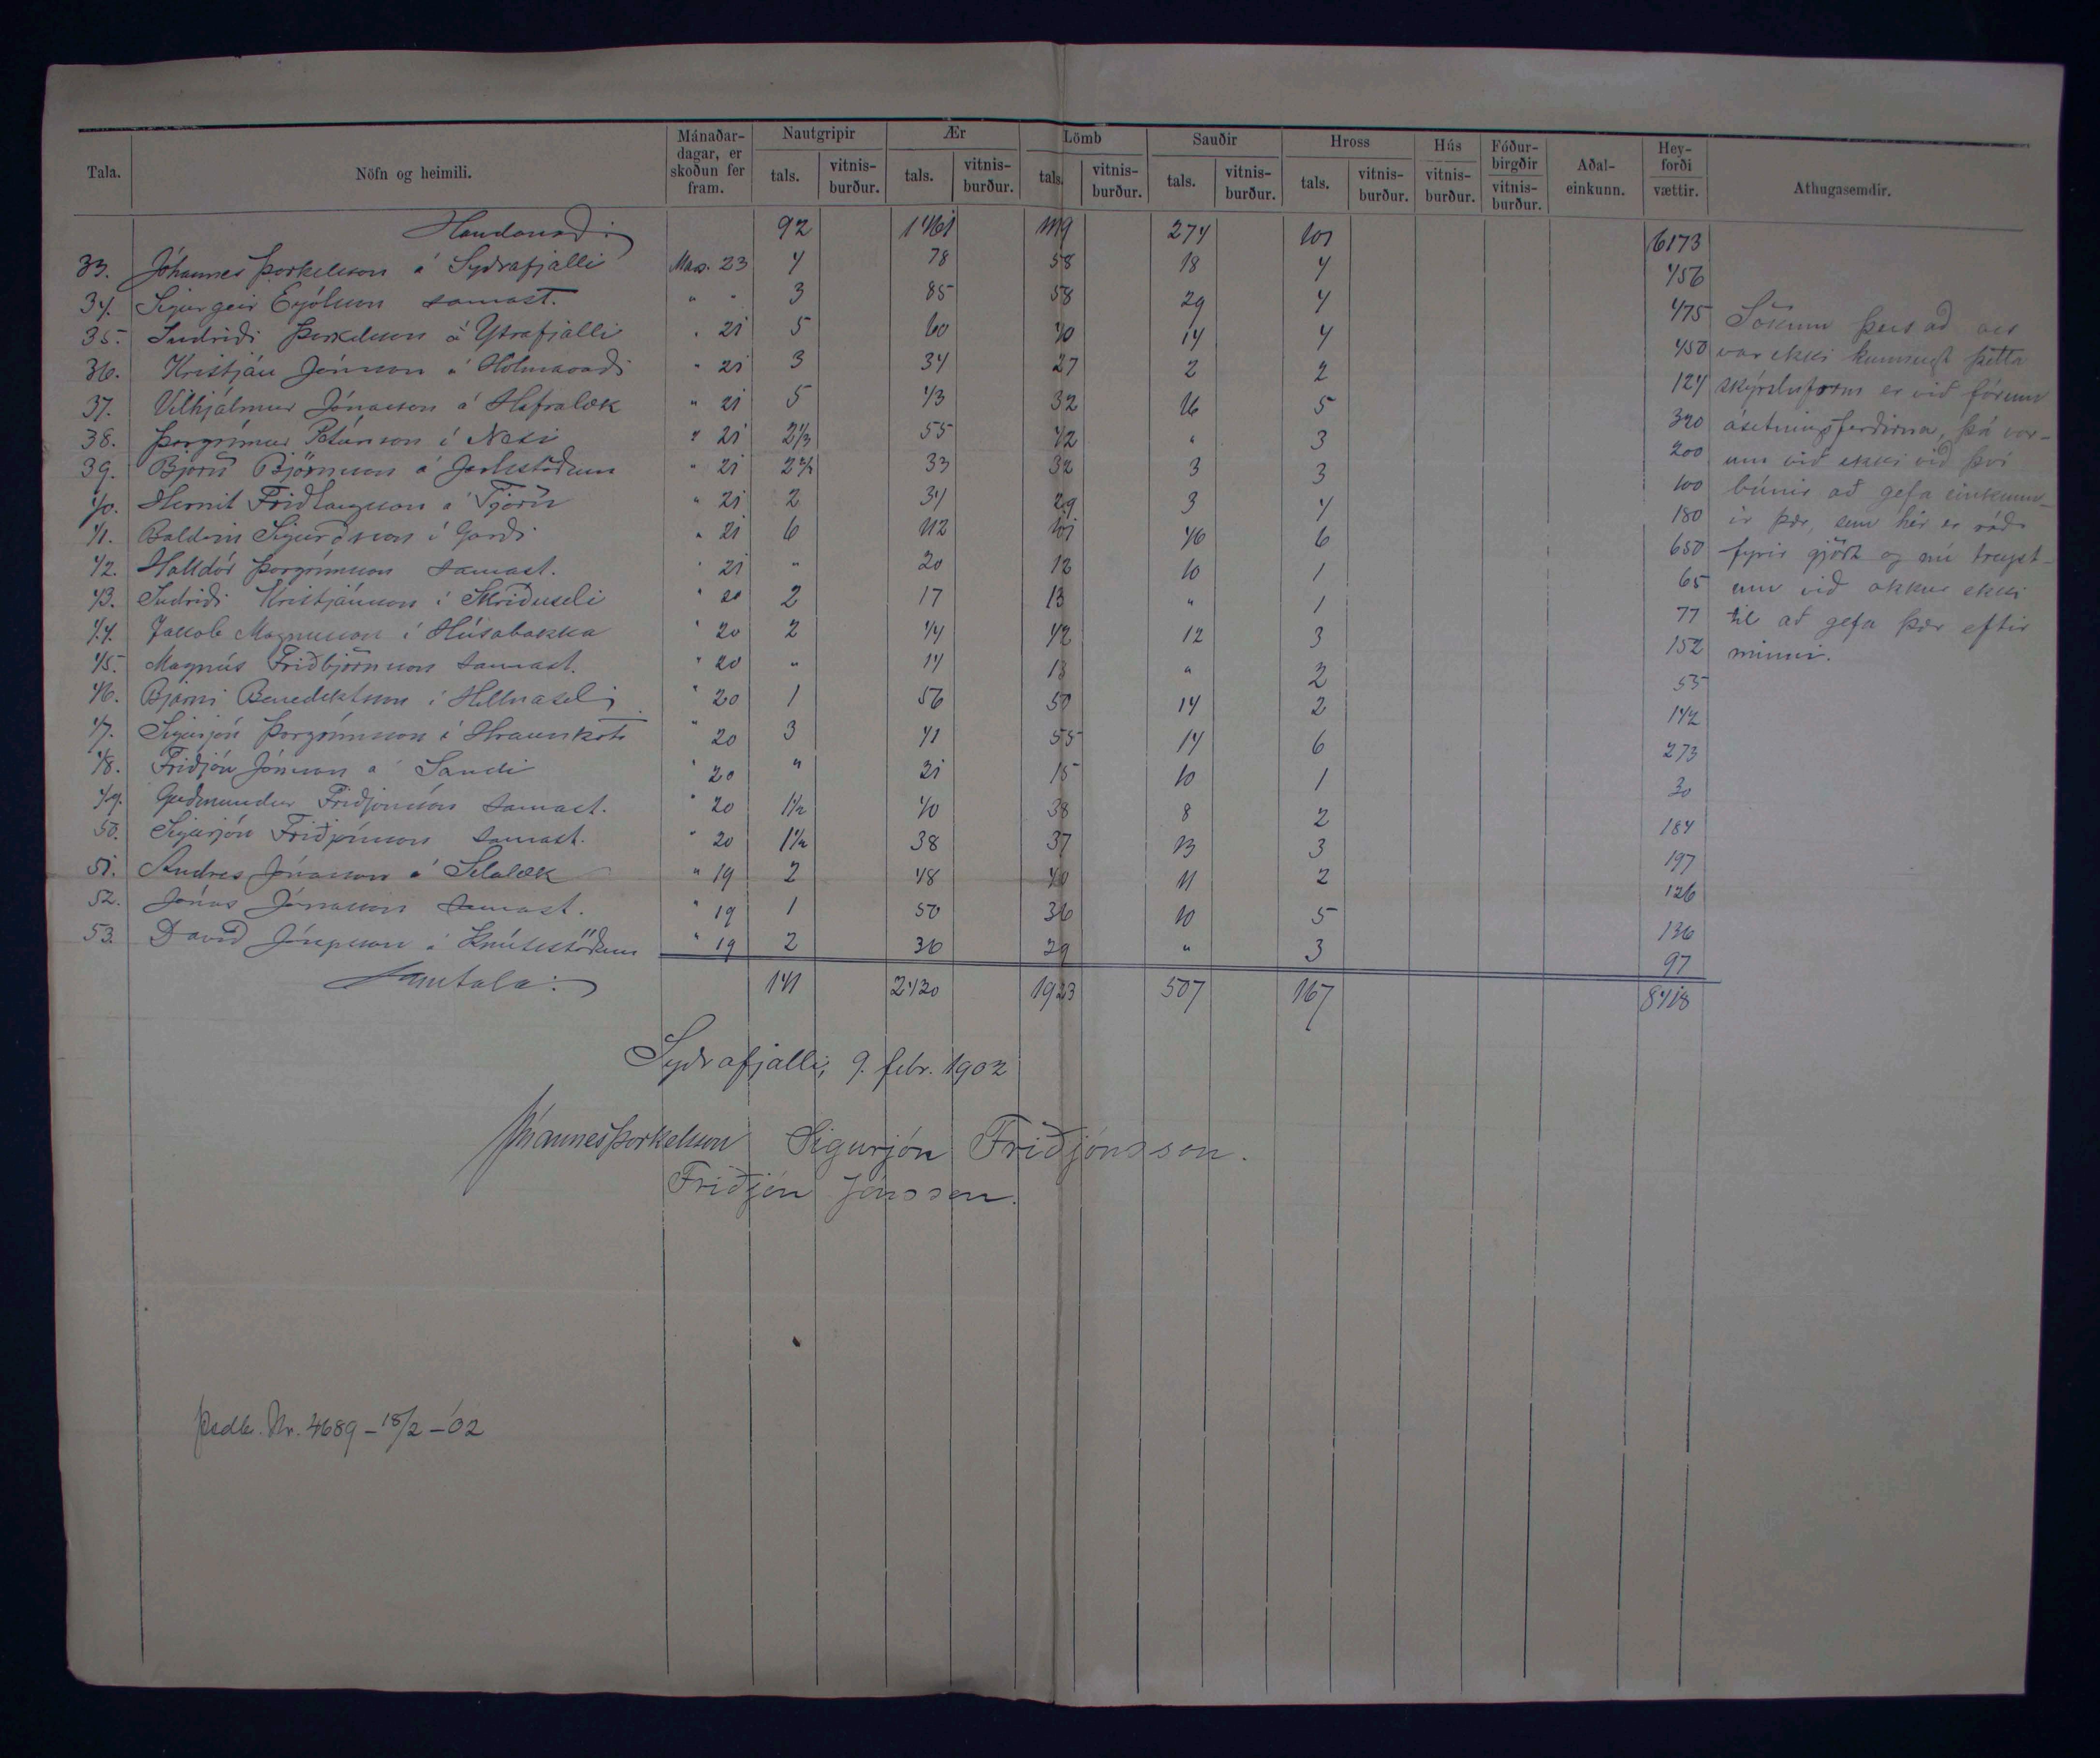 Tala. Nöfn og heimili. Mánaðar-dagar, er skoðun fer fram. Nautgripir tals. vitnis-burður. Ær tals. vitnis-burður. Lömb tals. vitnis-burður. Sauðir tals. vitnis-burður. Hross tals. vitnis-burður. Hús vitnis-burður. Fóður-birgðir vitnis-burður. Aðal-einkunn. Hey-forði vættir. Athugasemdir.
92 1461 1119 274 101 6173
33. Jóhannes Þorkelsson á Sydrafjalli Mars. 23 4 78 58 18 4 456
34. Sigurgeir Eyjólsson samast. " " 3 85 58 29 4 475
35. Indriði Þorkelsson á Ytrafjalli " 21 5 60 40 14 4 450
36. Kristján Jónsson á Hólmavaði " 21 3 34 27 2 2 124
37. Vilhjálmur Jónasson á Hafralæk " 21 5 43 32 16 5 320
38. Þorgrímur Pétursson í Nesi " 21 2 1/3 55 42 " 3 200
39. Björn Björnsson á Jarlsstöðum " 21 2 2/3 33 32 3 3 100
40. Hernit Friðlaugsson á Tjörn " 21 2 34 29 3 4 180
41. Baldvin Sigurðsson í Garði " 21 6 112 101 46 6 650
42. Halldór Þorgrímsson samast. " 21 " 20 12 10 1 65
43. Indriði Kristjánsson í Skriðuseli " 20 2 17 13 " 1 77
44. Jakob Magnusson í Húsabakka " 20 2 44 42 12 3 152
45. Magnús Friðbjörnsson samast. " 20 " 14 13 " 2 55
46. Bjarni Benediktsson í Hellnaseli " 20 1 56 50 14 2 142
47. Sigurjón Þorgrímsson í Hraunkoti " 20 3 41 55 14 6 273
48. Friðjón Jónsson á Sandi " 20 " 21 15 10 1 30
49. Guðmundur Friðjónsson samast. " 20 1 1/2 40 38 8 2 184
50. Sigurjón Friðjónsson samast. " 20 1 1/2 38 37 13 3 197
51. Andres Jónasson á Sílalæk " 19 2 48 40 11 2 126
52. Jónas Jónasson samast. " 19 1 50 36 10 5 136
53. Davíð Jónsson á Knútsstöðum " 19 2 36 29 " 3 97
Samtala: 141 2420 1923 507 167 8418
Sökum þess að oss
var ekki kunnugt þetta
skýrsluform er við fórum
ásetningsferðirnar, þá vor-
um við ekki við því
búnir að gefa einkunn-
ir þær, sem hér er ráð
fyrir gjört og nú treyst-
um við okkur ekki
til að gefa þær eftir
minni.
Sydrafjalli, 9. febr. 1902
Jóhannes Þorkelsson Sigurjón Friðjónsson.
Friðjón Jónsson.
Nr. 4689 – 18/2 – '02